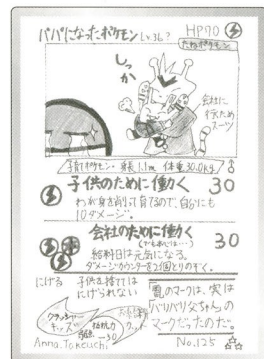 パパになったポケモン Lv.36? HP70
たねポケモン
しっか
会社に
行くため
スーツ
子育てポケモン 身長 1.1m 体重 30.0kg
子供のために働く 30
わが身を削って育てるので、自分にも
10ダメージ。
会社のために働く 30
給料日は元気になる。
ダメージカウンターを2個とりのぞく。
にげる 子供を捨てては
にげられない
クラッシャー
キッズ
抵抗力
-30
雷のマークは、実は
「バリバリ父ちゃん」の
マークだったのだ。
Anna.Takeuchi No.125